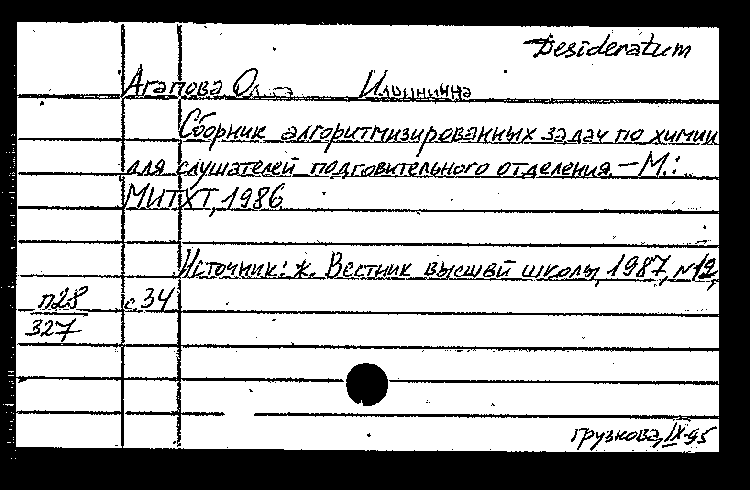 Desideratum
Агапова Ильинична
Сборник алгоритмизированных задач по химии
для слушателей подговительного отделения. – М.:
МИТХТ, 1986
Источник: ж. Вестник высшей школы, 1987, №12,
п28 с. 34
327
Грузкова, IX-95